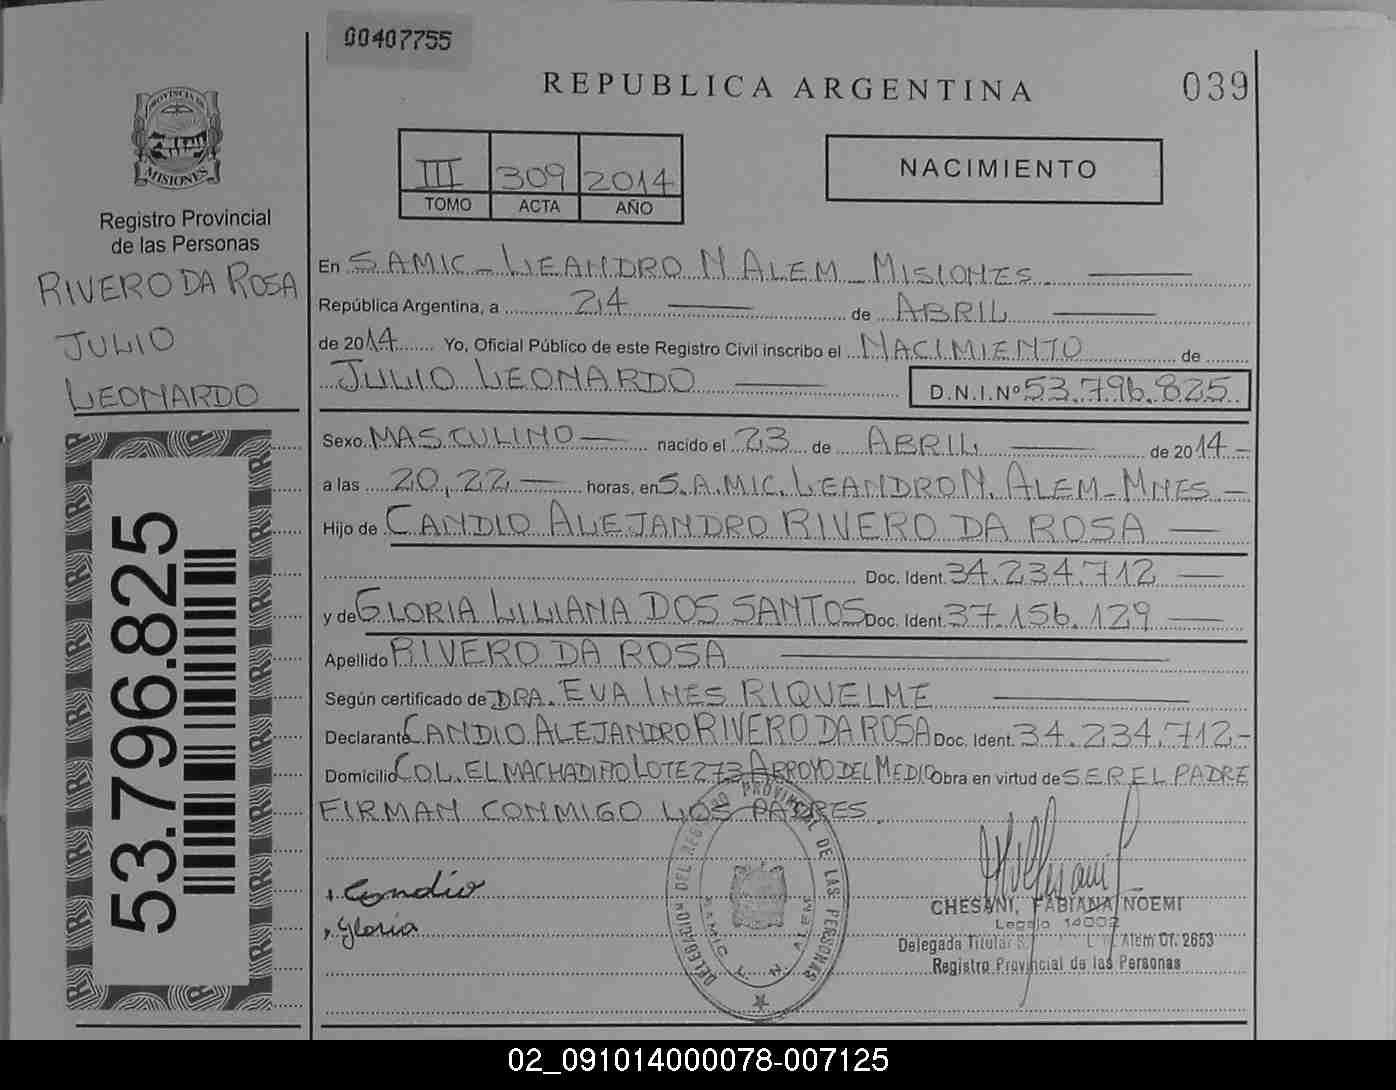 00407755
REPUBLICA ARGENTINA
039
PROVINCIA DE
MISIONES
III 309 2014
TOMO ACTA AÑO
NACIMIENTO
Registro Provincial
de las Personas
RIVERO DA ROSA
JULIO
LEONARDO
53.796.825
En S.A.MIC - LEANDRO N ALEM - MISIONES
República Argentina, a 24 de ABRIL
de 2014 Yo, Oficial Público de este Registro Civil inscribo el NACIMIENTO de
JULIO LEONARDO D.N.I.Nº 53.796.825
Sexo MASCULINO nacido el 23 de ABRIL de 2014
a las 20,22 horas, en S.A.MIC. LEANDRO N. ALEM - MNES
Hijo de CANDIO ALEJANDRO RIVERO DA ROSA
Doc. Ident. 34.234.712
y de GLORIA LILIANA DOS SANTOS Doc. Ident. 37.156.129
Apellido RIVERO DA ROSA
Según certificado de DRA. EVA INES RIQUELME
Declarante CANDIO ALEJANDRO RIVERO DA ROSA Doc. Ident. 34.234.712-
Domicilio COL. EL MACHADIÑO LOTE 273 ARROYO DEL MEDIO Obra en virtud de SER EL PADRE
FIRMAN CONMIGO LOS PADRES.
Candio
Gloria
DELEGACION DEL REGISTRO PROVINCIAL DE LAS PERSONAS
SAMIC L. N. ALEM
CHESANI, FABIANA NOEMI
Legajo
Delegada Titular Alem Of. 2653
Registro Provincial de las Personas
02_091014000078-007125